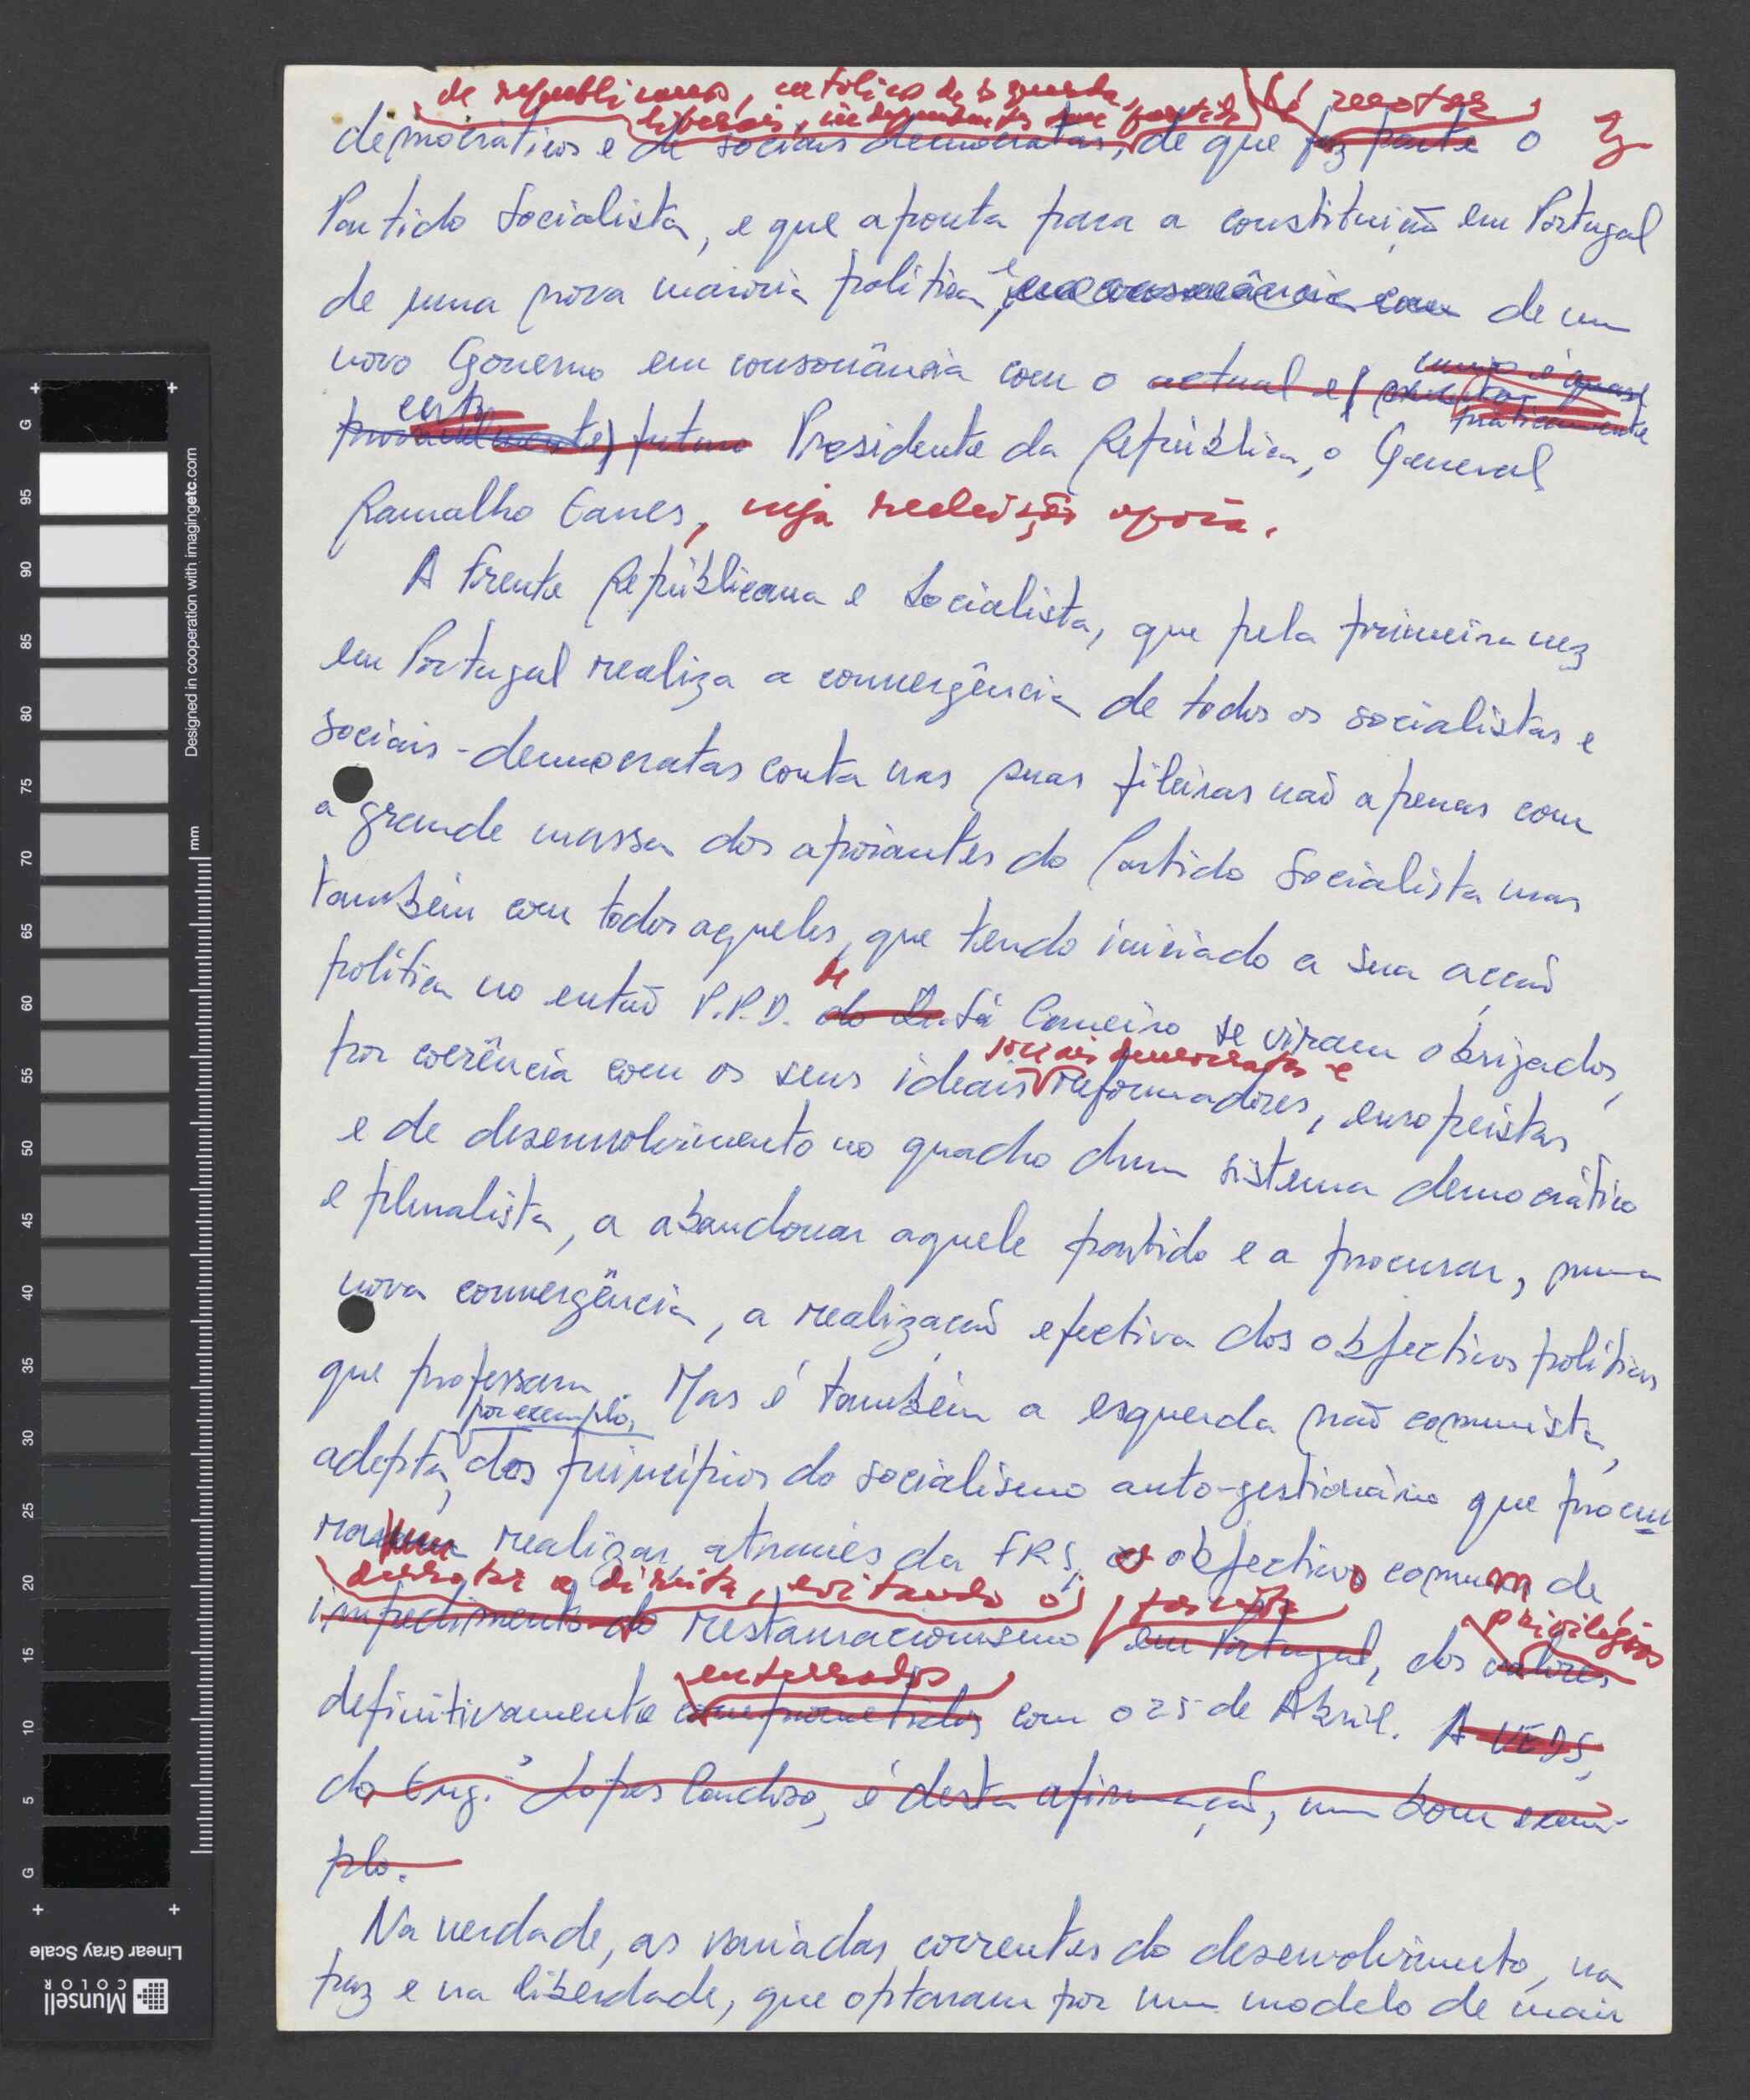 de republicanos, católicos de esquerda,
liberais, independentes sem partido
é reactor
democráticos e de sociais democratas, de que faz parte o
Partido Socialista, e que aponta para a constituição em Portugal
de uma nova maioria política, e em consonância com de um
novo Governo em consonância com o actual e
praticamente
certo
provavelmente) futuro Presidente da República, o General
Ramalho Eanes, cuja reeleição apoia.
A Frente Républicana e Socialista, que pela primeira vez
em Portugal realiza a convergência de todos os socialistas e
sociais-democratas conta nas suas fileiras não apenas com
a grande massa dos apoiantes do Partido Socialista mas
também com todos aqueles, que tendo iniciado a sua acção
de
política no então P.P.D. do Dr. Sá Carneiro se viram obrigados,
sociais democratas e
por coerência com os seus ideais reformadores, europeistas
e de desenvolvimento no quadro dum sistema democrático
e pluralista, a abandonar aquele partido e a procurar, numa
nova convergência, a realização efectiva dos objectivos políticos
que professam. Mas é também a esquerda não comunista,
por exemplo,
adepta, dos princípios do socialismo auto-gestionário que procu
ram realizar, através da FRS, o objectivo comum de
derrotar a direita, evitando o
impedimento do restauracionismo em Portugal, dos valores
privilégios
enterrados
definitivamente comprometidos com o 25 de Abril. A UEDS,
do Eng.º Lopes Cardoso, é desta afirmação, um bom exem-
plo.
Na verdade, as variadas correntes do desenvolvimento, na
paz e na liberdade, que optaram por um modelo de mais
Munsell
COLOR
Linear Gray Scale
Designed in cooperation with imagingetc.com
mm
G 95 90 85 80 75 70 65 60 55 50 45 40 35 30 25 20 15 10 5 G